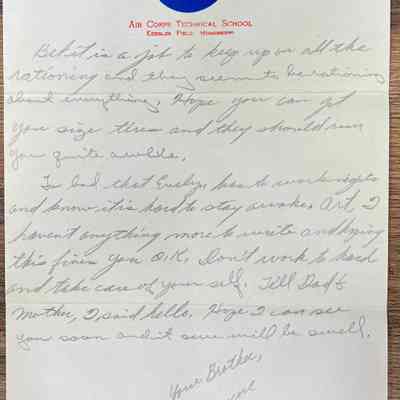 AIR CORPS TECHNICAL SCHOOL
KEESLER FIELD, MISSISSIPPI
Bet it is a job to keep up on all the
rationing and they seem to be rationing
about everything. Hope you can get
your size tires and they should run
you quite awhile.
To bad that has to work nights
and know it is hard to stay awake. Art, I
haven't anything more to write and hoping
this fines you O.K. Don't work to hard
and take care of your self. Tell Dad &
Mother, I said hello. Hope I can see
you soon and it sure will be swell.
Your Brother,